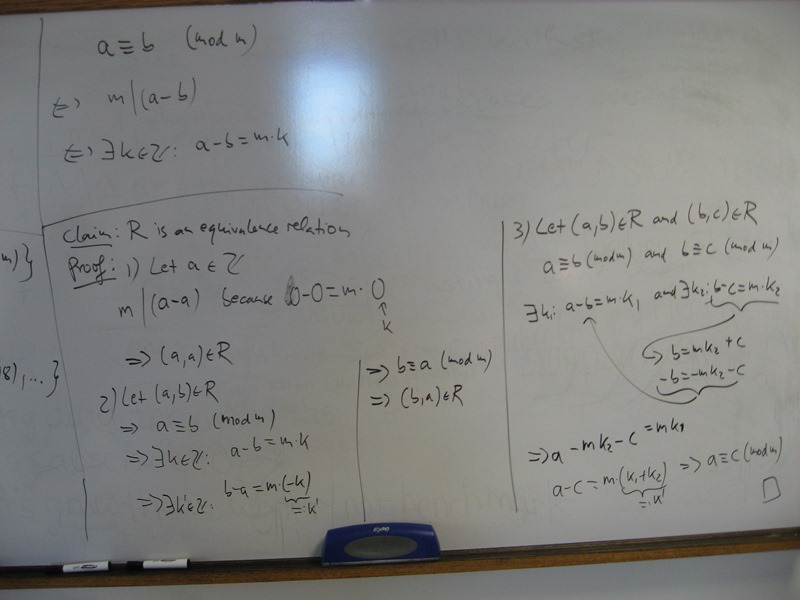 a ≡ b (mod m)
⇔ m | (a-b)
⇔ ∃k∈ℤ: a-b = m·k
m)}
8),...}
Claim: R is an equivalence relation
Proof: 1) Let a ∈ ℤ
m | (a-a) because 0-0=m·0
↑
k
⇒ (a,a)∈R
2) Let (a,b)∈R
⇒ a≡b (mod m)
⇒ ∃k∈ℤ: a-b = m·k
⇒ ∃k'∈ℤ: b-a = m·(-k)
=:k'
⇒ b≡a (mod m)
⇒ (b,a)∈R
3) Let (a,b)∈R and (b,c)∈R
a≡b (mod m) and b≡c (mod m)
∃k₁: a-b=m·k₁ and ∃k₂: b-c=m·k₂
b=mk₂+c
-b=-mk₂-c
⇒ a-mk₂-c = mk₁
a-c = m·(k₁+k₂) ⇒ a≡c (mod m)
=:k'
□
EXPO